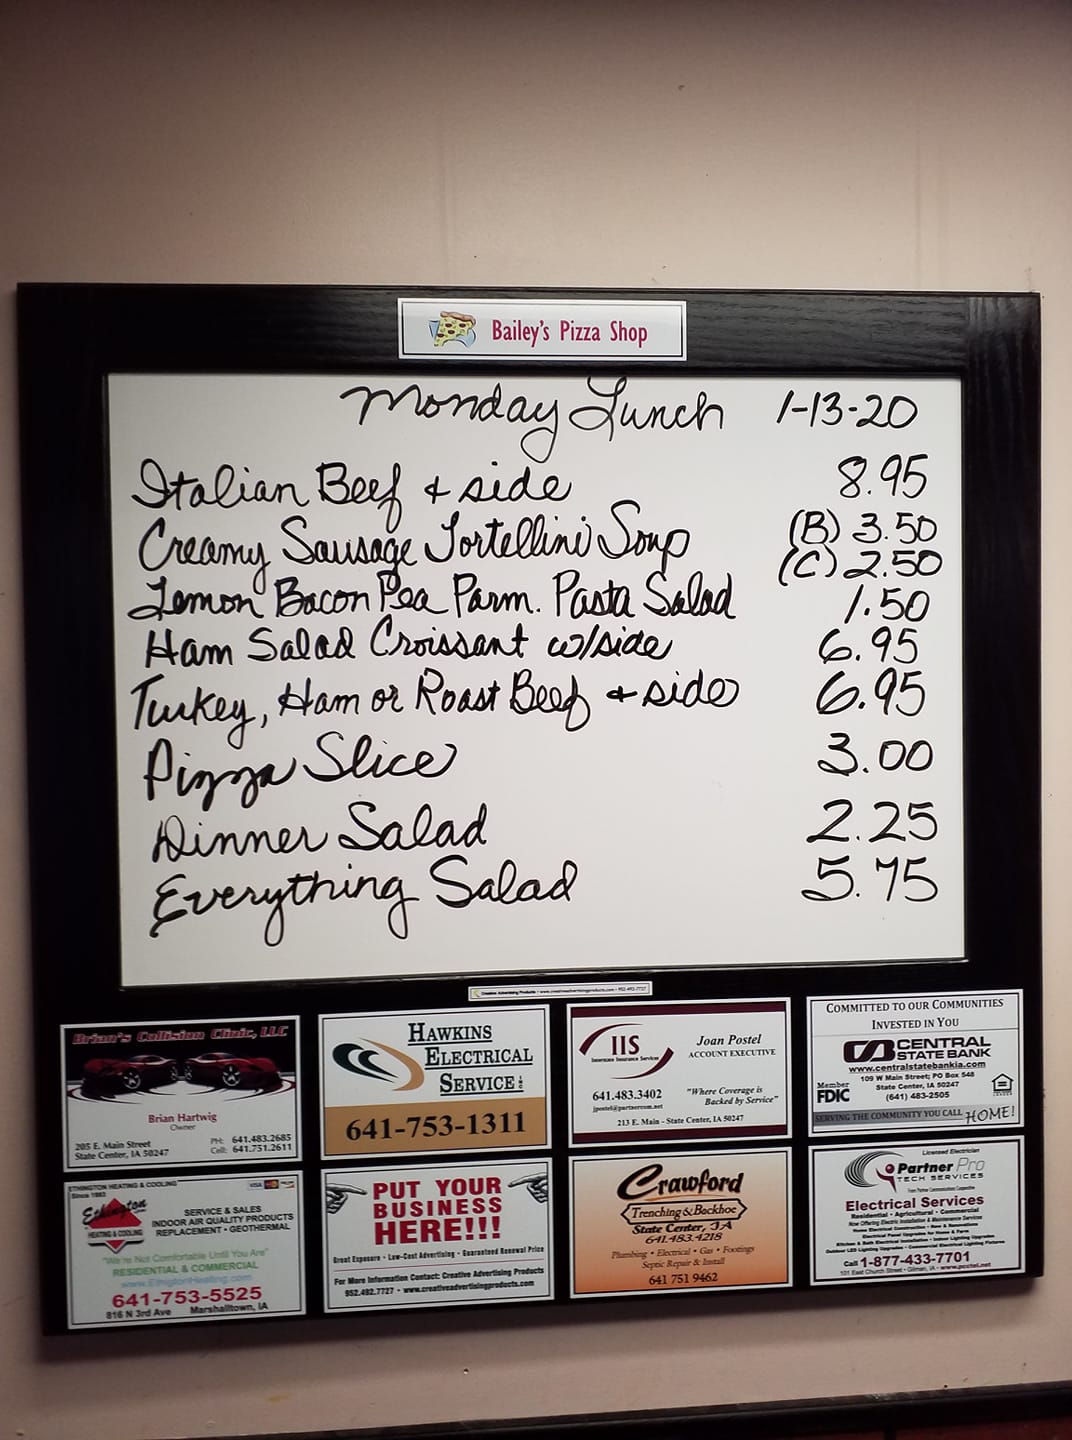 Bailey's Pizza Shop
Monday Lunch 1-13-20
Italian Beef + side 8.95
Creamy Sausage Tortellini Soup (B) 3.50
(C) 2.50
Lemon Bacon Pea Parm. Pasta Salad 1.50
Ham Salad Croissant w/side 6.95
Turkey, Ham or Roast Beef + side 6.95
Pizza Slice 3.00
Dinner Salad 2.25
Everything Salad 5.75
Creative Advertising Products • www.creativeadvertisingproducts.com • 952-492-7727
Brian's Collision Clinic, LLC
Brian Hartwig
Owner
205 E. Main Street
State Center, IA 50247
PH: 641.483.2685
Cell: 641.751.2611
HAWKINS
ELECTRICAL
SERVICE INC
641-753-1311
IIS
Insurance Services
Joan Postel
ACCOUNT EXECUTIVE
641.483.3402
jpostel@partnercom.net
"Where Coverage is
Backed by Service"
213 E. Main - State Center, IA 50247
COMMITTED TO OUR COMMUNITIES
INVESTED IN YOU
CENTRAL
STATE BANK
www.centralstatebankia.com
109 W Main Street; PO Box 548
State Center, IA 50247
(641) 483-2505
Member
FDIC
SERVING THE COMMUNITY YOU CALL HOME!
ETHINGTON HEATING & COOLING
Since 1993
VISA
Ethington
HEATING & COOLING
SERVICE & SALES
INDOOR AIR QUALITY PRODUCTS
REPLACEMENT • GEOTHERMAL
"We're Not Comfortable Until You Are"
RESIDENTIAL & COMMERCIAL
www.EthingtonHeating.com
641-753-5525
816 N 3rd Ave Marshalltown, IA
PUT YOUR
BUSINESS
HERE!!!
Great Exposure • Low-Cost Advertising • Guaranteed Renewal Price
For More Information Contact: Creative Advertising Products
952.492.7727 • www.creativeadvertisingproducts.com
Crawford
Trenching & Backhoe
State Center, IA
641.483.4218
Plumbing • Electrical • Gas • Footings
Septic Repair & Install
641 751 9462
Licensed Electrician
Partner Pro
TECH SERVICES
From Partner Communications Cooperative
Electrical Services
Residential • Agricultural • Commercial
Now Offering Electric Installation & Maintenance Services
Home Electrical Construction - New & Repairs
Electrical Panel Upgrades for Home & Farm
Kitchen & Bath Electrical Installation • Indoor Lighting Upgrades
Outdoor LED Lighting Upgrades • Electrical Lighting Fixtures
Call 1-877-433-7701
101 East Church Street • Gilman, IA • www.pcctel.net